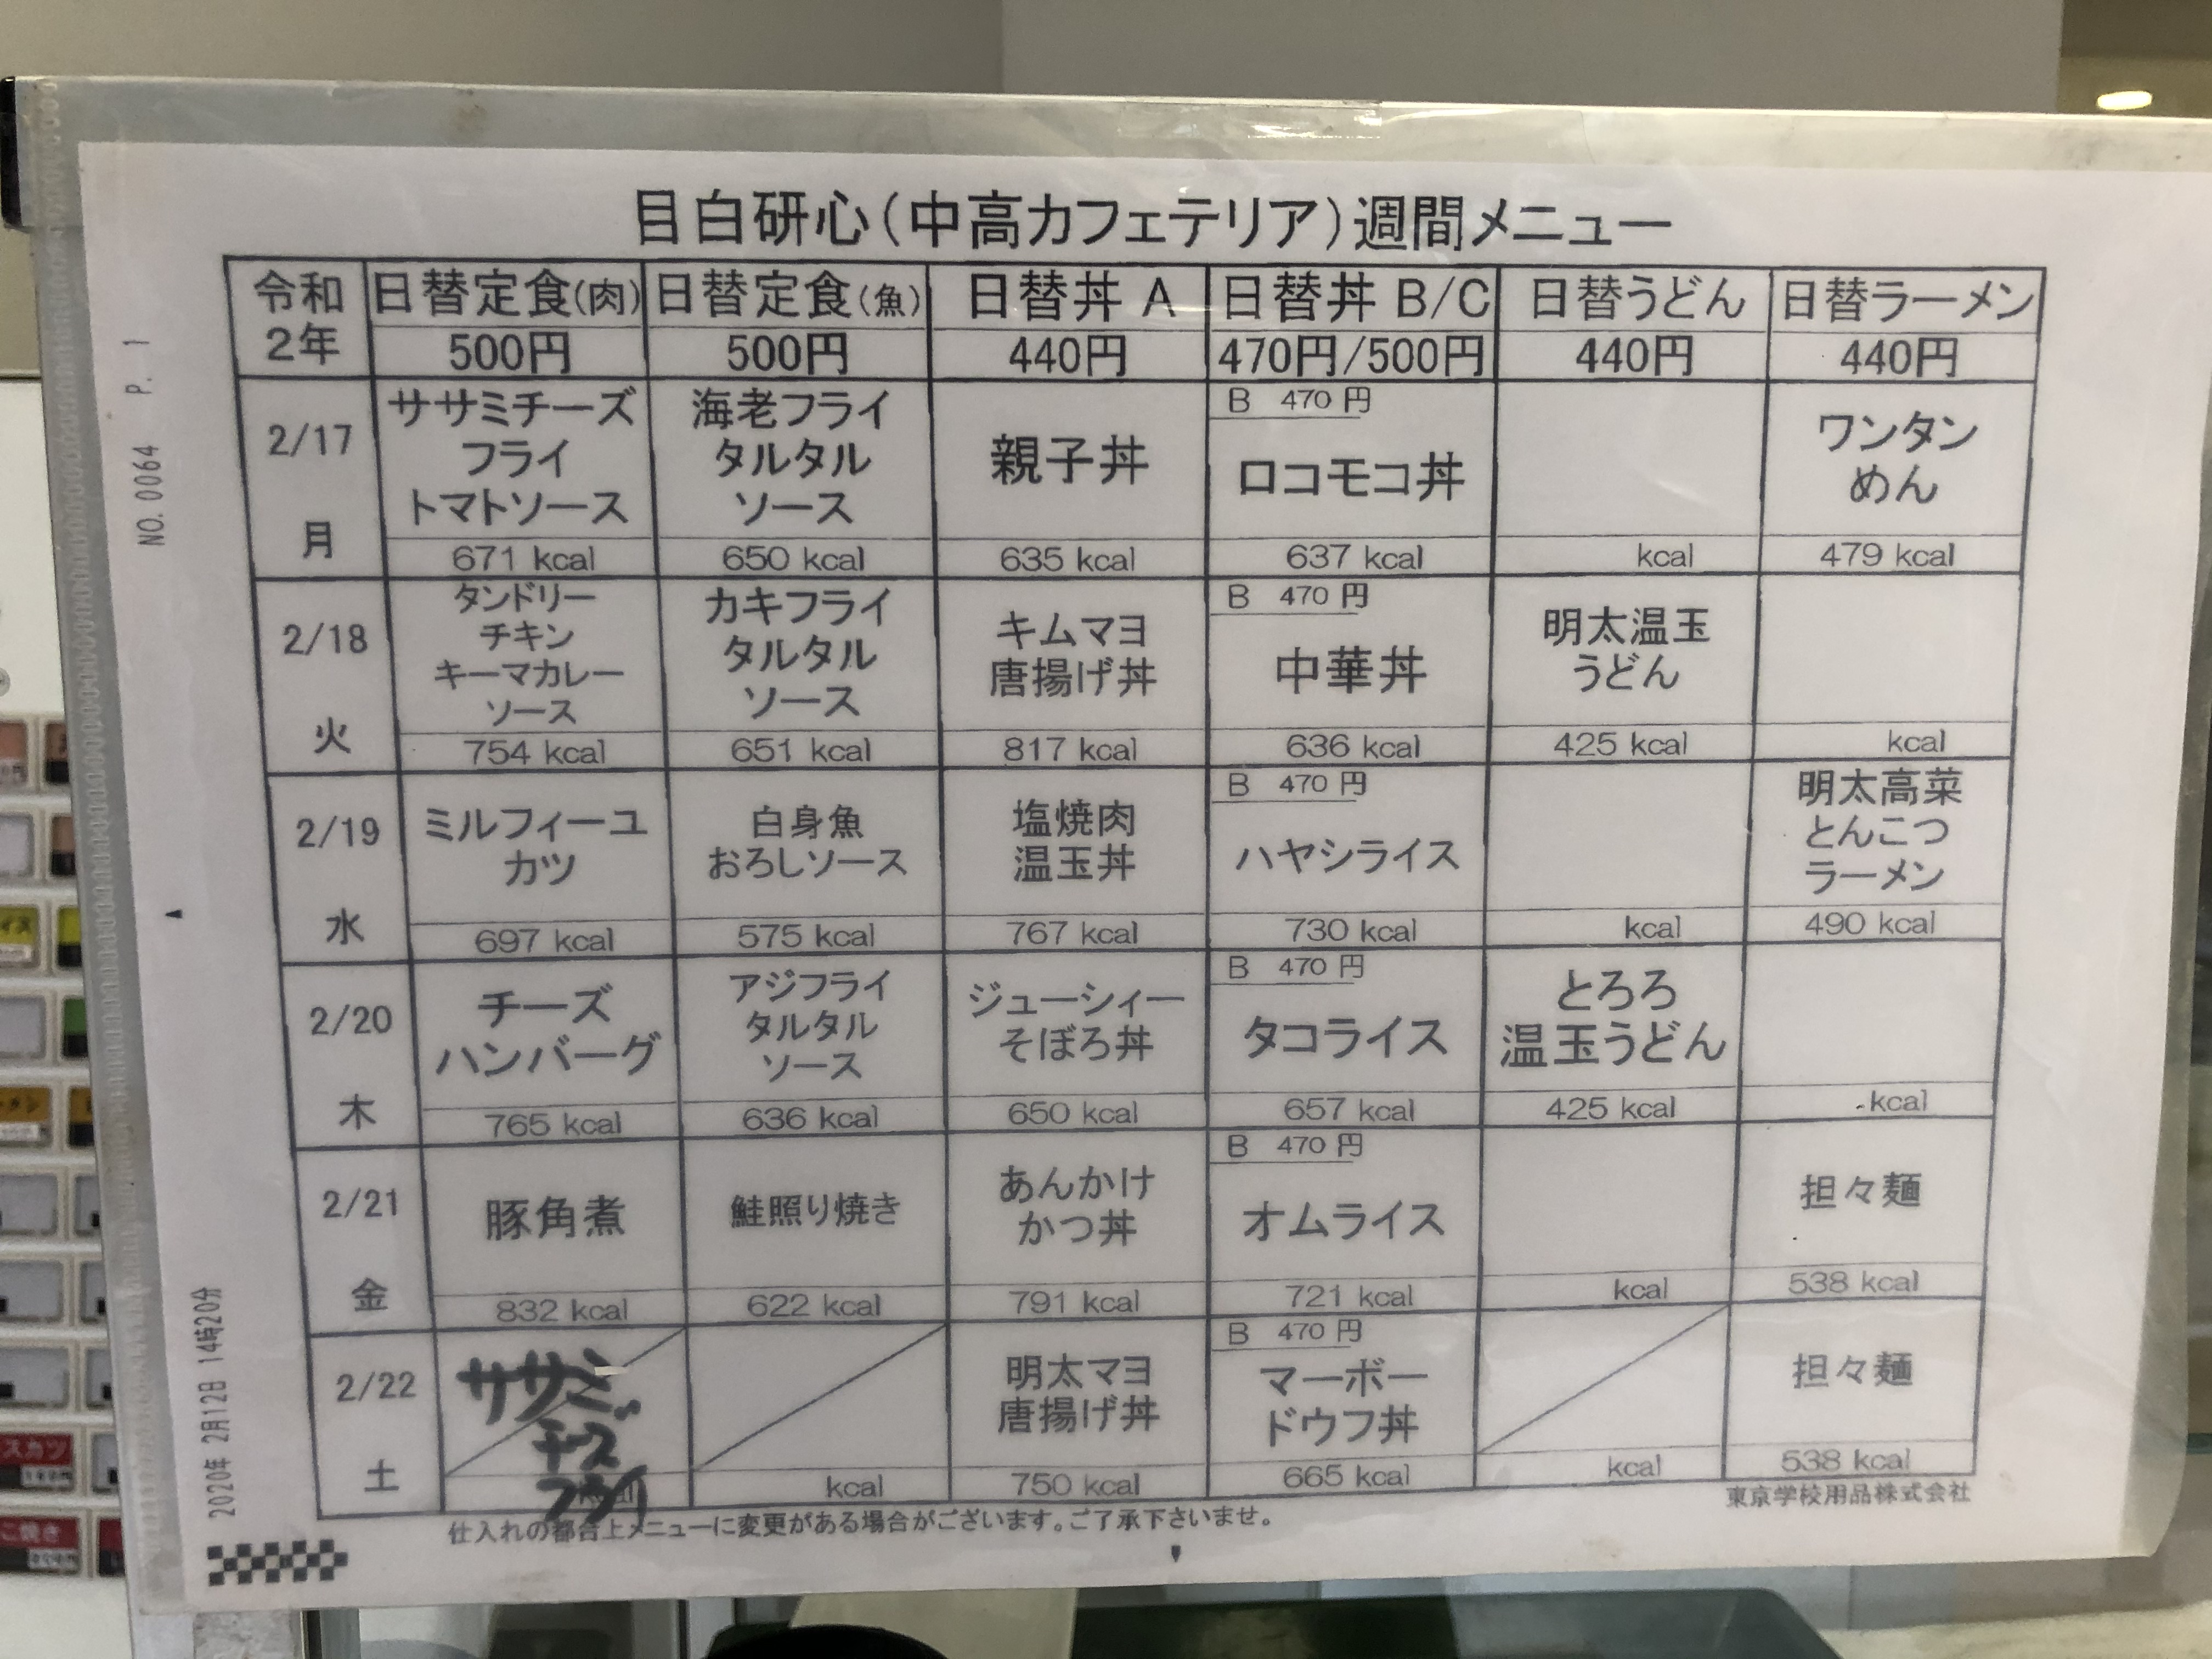 目白研心(中高カフェテリア)週間メニュー
令和
2年
日替定食(肉)
500円
日替定食(魚)
500円
日替丼 A
440円
日替丼 B/C
470円/500円
日替うどん
440円
日替ラーメン
440円
2/17
月
ササミチーズ
フライ
トマトソース
671 kcal
海老フライ
タルタル
ソース
650 kcal
親子丼
635 kcal
B 470 円
ロコモコ丼
637 kcal
kcal
ワンタン
めん
479 kcal
2/18
火
タンドリー
チキン
キーマカレー
ソース
754 kcal
カキフライ
タルタル
ソース
651 kcal
キムマヨ
唐揚げ丼
817 kcal
B 470 円
中華丼
636 kcal
明太温玉
うどん
425 kcal
kcal
2/19
水
ミルフィーユ
カツ
697 kcal
白身魚
おろしソース
575 kcal
塩焼肉
温玉丼
767 kcal
B 470 円
ハヤシライス
730 kcal
kcal
明太高菜
とんこつ
ラーメン
490 kcal
2/20
木
チーズ
ハンバーグ
765 kcal
アジフライ
タルタル
ソース
636 kcal
ジューシィー
そぼろ丼
650 kcal
B 470 円
タコライス
657 kcal
とろろ
温玉うどん
425 kcal
kcal
2/21
金
豚角煮
832 kcal
鮭照り焼き
622 kcal
あんかけ
かつ丼
791 kcal
B 470 円
オムライス
721 kcal
kcal
担々麺
538 kcal
2/22
土
ササミ
チーズ
フライ
kcal
kcal
明太マヨ
唐揚げ丼
750 kcal
B 470 円
マーボー
ドウフ丼
665 kcal
kcal
担々麺
538 kcal
仕入れの都合上メニューに変更がある場合がございます。ご了承下さいませ。
東京学校用品株式会社
NO. 0064 P. 1
2020年 2月12日 14時20分
スカツ
こ焼き